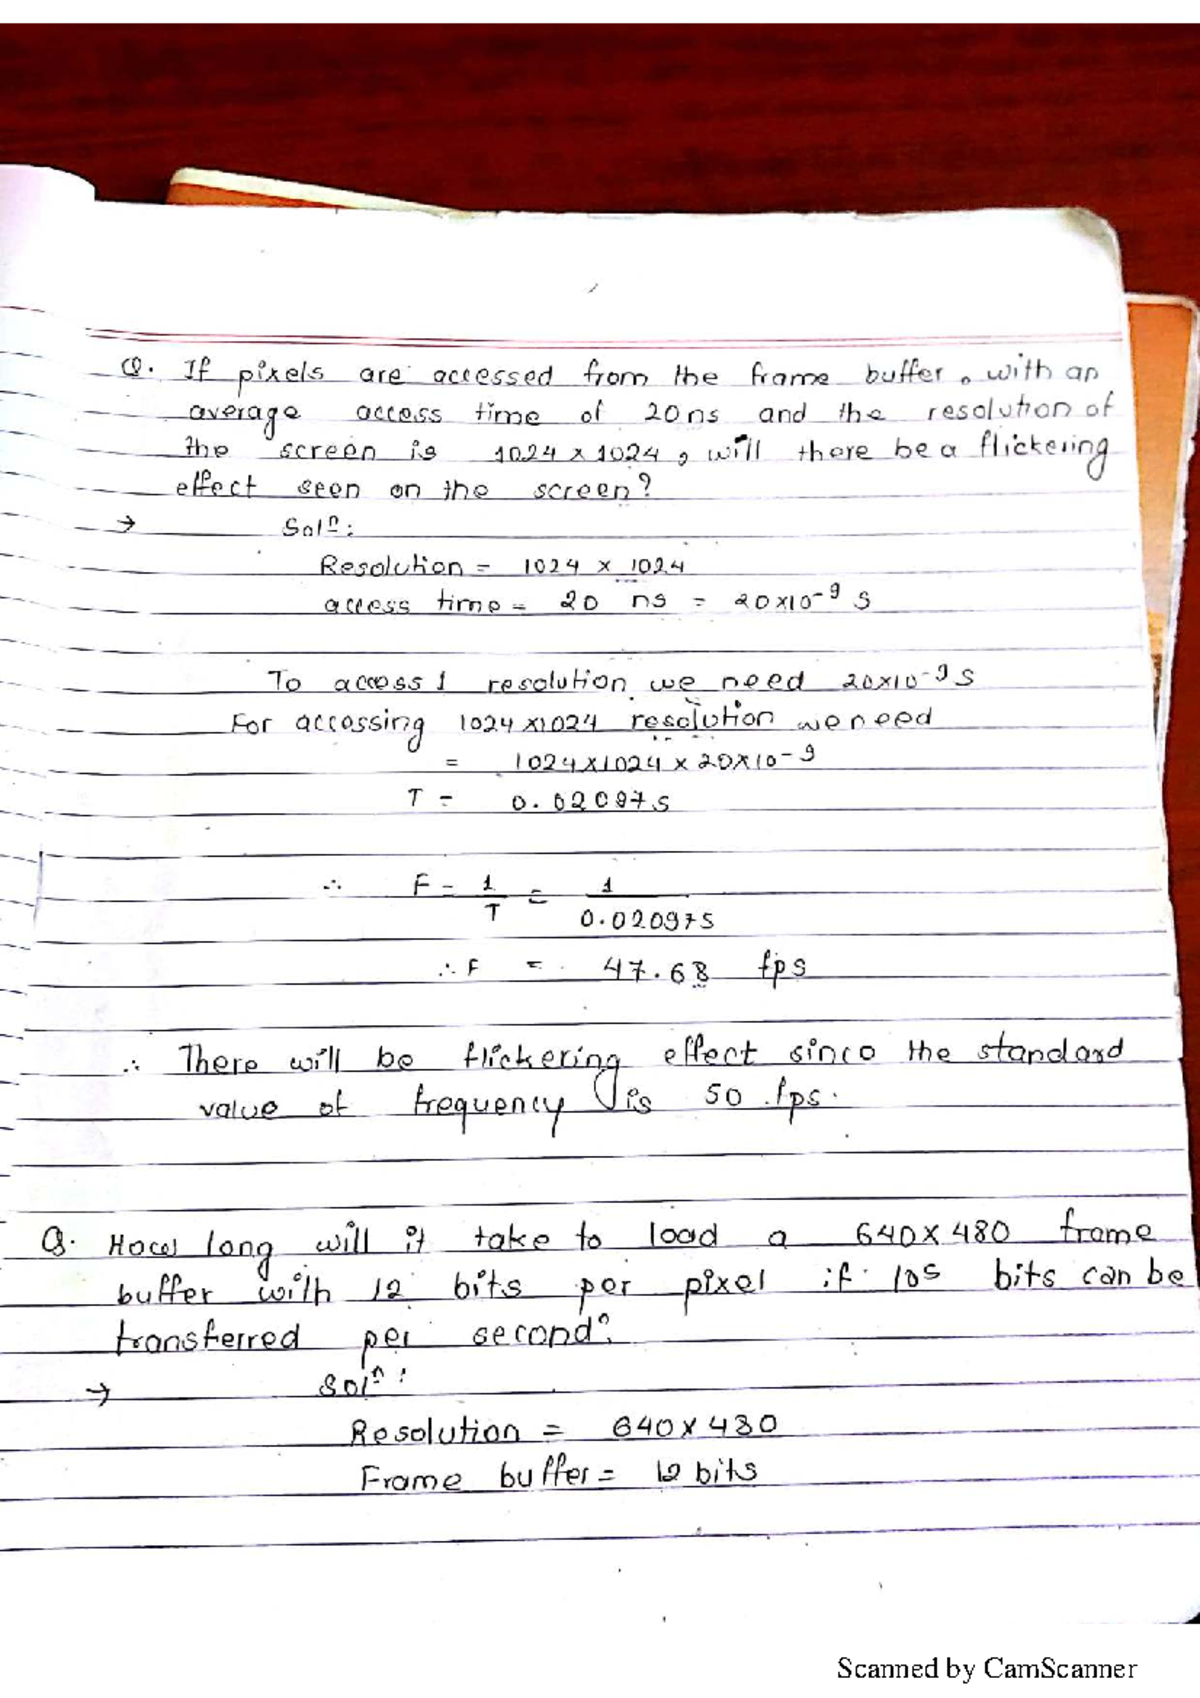 Q. If pixels are accessed from the frame buffer, with an
average access time of 20ns and the resolution of
the screen is 1024 x 1024, will there be a flickering
effect seen on the screen?
→ Solⁿ:
Resolution = 1024 x 1024
access time = 20 ns = 20x10⁻⁹ S
To access 1 resolution we need 20x10⁻⁹ S
For accessing 1024x1024 resolution we need
= 1024x1024 x 20x10⁻⁹
T = 0.02097s
∴ F = 1/T = 1/0.02097s
∴ F = 47.68 fps
∴ There will be flickering effect since the standard
value of frequency is 50 fps.
Q. How long will it take to load a 640x480 frame
buffer with 12 bits per pixel if 10⁵ bits can be
transferred per second?
→ Solⁿ:
Resolution = 640x480
Frame buffer = 12 bits
Scanned by CamScanner